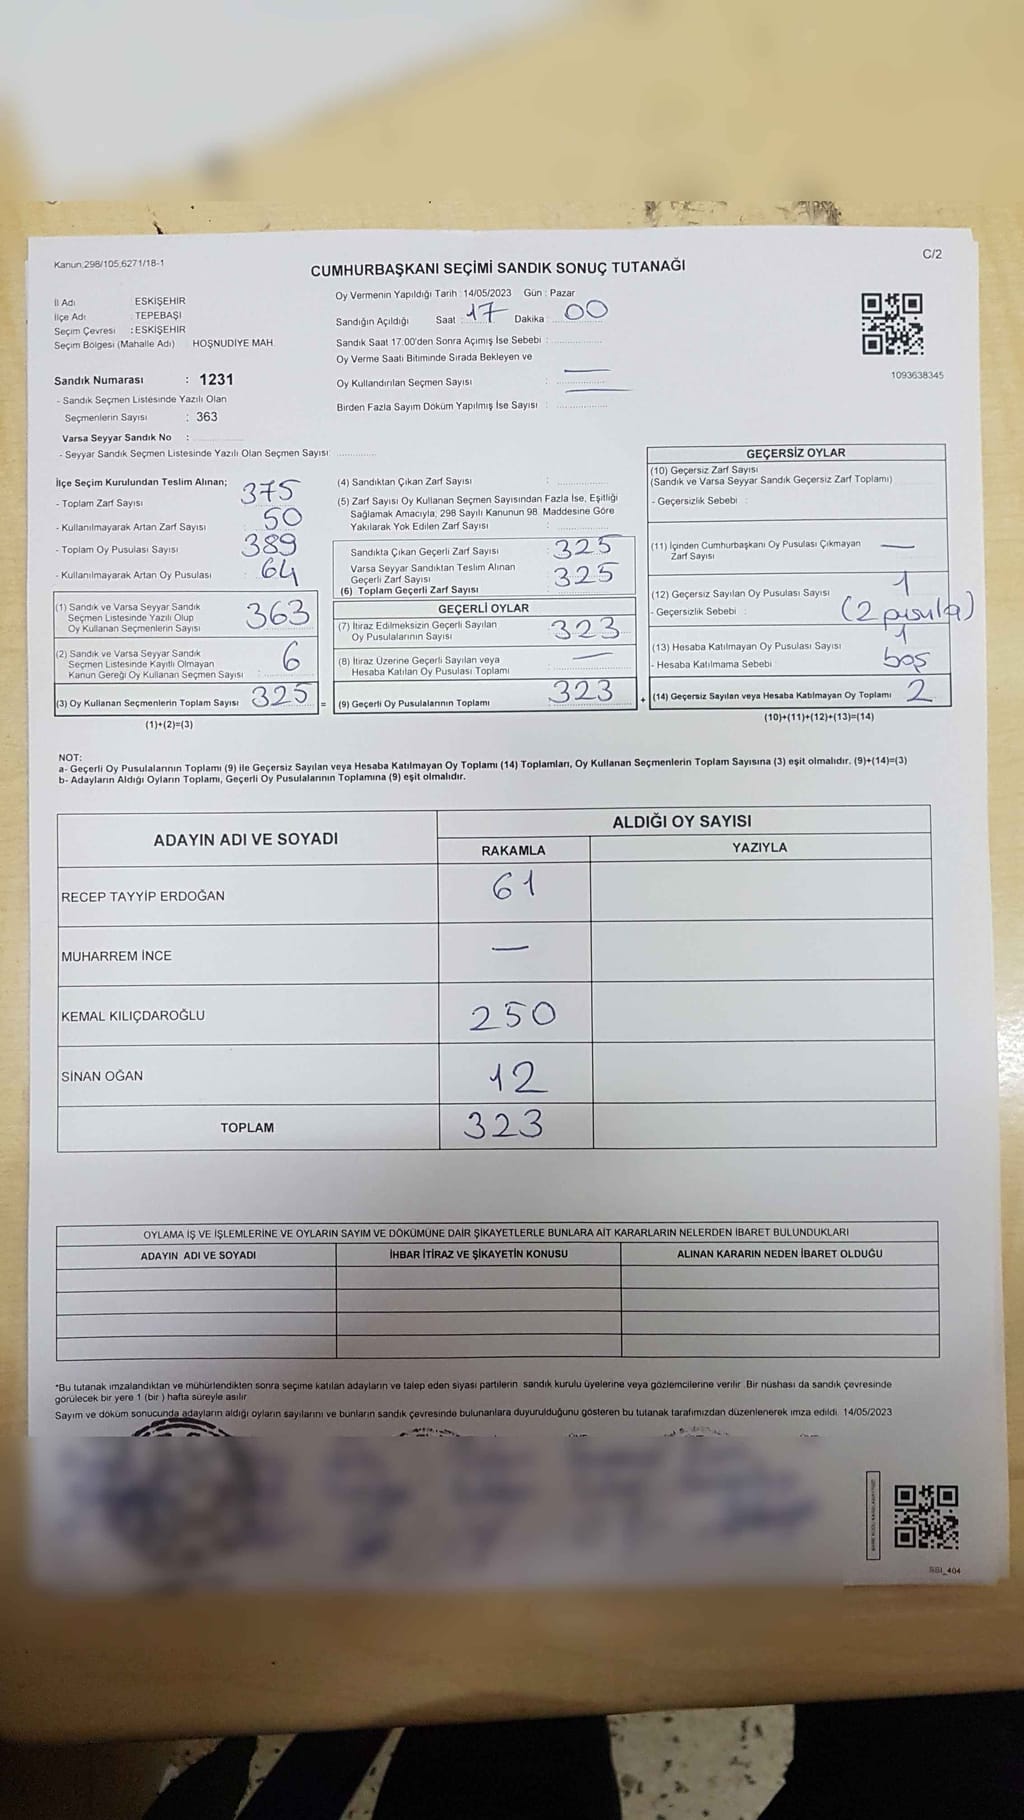 Kanun.298/105,6271/18-1
C/2
CUMHURBAŞKANI SEÇİMİ SANDIK SONUÇ TUTANAĞI
İl Adı ESKİŞEHİR
İlçe Adı : TEPEBAŞI
Seçim Çevresi : ESKİŞEHİR
Seçim Bölgesi (Mahalle Adı) HOŞNUDİYE MAH.
Sandık Numarası : 1231
- Sandık Seçmen Listesinde Yazılı Olan
Seçmenlerin Sayısı : 363
Varsa Seyyar Sandık No :
- Seyyar Sandık Seçmen Listesinde Yazılı Olan Seçmen Sayısı:
Oy Vermenin Yapıldığı Tarih : 14/05/2023 Gün : Pazar
Sandığın Açıldığı Saat : 17 Dakika : 00
Sandık Saat 17.00'den Sonra Açımış İse Sebebi :
Oy Verme Saati Bitiminde Sırada Bekleyen ve
Oy Kullandırılan Seçmen Sayısı : —
Birden Fazla Sayım Döküm Yapılmış İse Sayısı :
1093638345
İlçe Seçim Kurulundan Teslim Alınan;
- Toplam Zarf Sayısı 375
- Kullanılmayarak Artan Zarf Sayısı 50
- Toplam Oy Pusulası Sayısı 389
- Kullanılmayarak Artan Oy Pusulası 64
(1) Sandık ve Varsa Seyyar Sandık
Seçmen Listesinde Yazılı Olup
Oy Kullanan Seçmenlerin Sayısı 363
(2) Sandık ve Varsa Seyyar Sandık
Seçmen Listesinde Kayıtlı Olmayan
Kanun Gereği Oy Kullanan Seçmen Sayısı 6
(3) Oy Kullanan Seçmenlerin Toplam Sayısı 325 =
(1)+(2)=(3)
(4) Sandıktan Çıkan Zarf Sayısı :
(5) Zarf Sayısı Oy Kullanan Seçmen Sayısından Fazla İse, Eşitliği
Sağlamak Amacıyla, 298 Sayılı Kanunun 98. Maddesine Göre
Yakılarak Yok Edilen Zarf Sayısı :
Sandıkta Çıkan Geçerli Zarf Sayısı : 325
Varsa Seyyar Sandıktan Teslim Alınan
Geçerli Zarf Sayısı : 325
(6) Toplam Geçerli Zarf Sayısı
GEÇERLİ OYLAR
(7) İtiraz Edilmeksizin Geçerli Sayılan
Oy Pusulalarının Sayısı 323
(8) İtiraz Üzerine Geçerli Sayılan veya
Hesaba Katılan Oy Pusulası Toplamı —
(9) Geçerli Oy Pusulalarının Toplamı 323 +
GEÇERSİZ OYLAR
(10) Geçersiz Zarf Sayısı
(Sandık ve Varsa Seyyar Sandık Geçersiz Zarf Toplamı)
- Geçersizlik Sebebi :
(11) İçinden Cumhurbaşkanı Oy Pusulası Çıkmayan
Zarf Sayısı —
(12) Geçersiz Sayılan Oy Pusulası Sayısı 1
- Geçersizlik Sebebi : (2 pusula)
(13) Hesaba Katılmayan Oy Pusulası Sayısı 1
- Hesaba Katılmama Sebebi : boş
(14) Geçersiz Sayılan veya Hesaba Katılmayan Oy Toplamı 2
(10)+(11)+(12)+(13)=(14)
NOT:
a- Geçerli Oy Pusulalarının Toplamı (9) ile Geçersiz Sayılan veya Hesaba Katılmayan Oy Toplamı (14) Toplamları, Oy Kullanan Seçmenlerin Toplam Sayısına (3) eşit olmalıdır. (9)+(14)=(3)
b- Adayların Aldığı Oyların Toplamı, Geçerli Oy Pusulalarının Toplamına (9) eşit olmalıdır.
ADAYIN ADI VE SOYADI ALDIĞI OY SAYISI
RAKAMLA YAZIYLA
RECEP TAYYİP ERDOĞAN 61
MUHARREM İNCE —
KEMAL KILIÇDAROĞLU 250
SİNAN OĞAN 12
TOPLAM 323
OYLAMA İŞ VE İŞLEMLERİNE VE OYLARIN SAYIM VE DÖKÜMÜNE DAİR ŞİKAYETLERLE BUNLARA AİT KARARLARIN NELERDEN İBARET BULUNDUKLARI
ADAYIN ADI VE SOYADI İHBAR İTİRAZ VE ŞİKAYETİN KONUSU ALINAN KARARIN NEDEN İBARET OLDUĞU
*Bu tutanak imzalandıktan ve mühürlendikten sonra seçime katılan adayların ve talep eden siyasi partilerin sandık kurulu üyelerine veya gözlemcilerine verilir. Bir nüshası da sandık çevresinde
görülecek bir yere 1 (bir) hafta süreyle asılır.
Sayım ve döküm sonucunda adayların aldığı oyların sayılarını ve bunların sandık çevresinde bulunanlara duyurulduğunu gösteren bu tutanak tarafımızdan düzenlenerek imza edildi. 14/05/2023
SBI_404